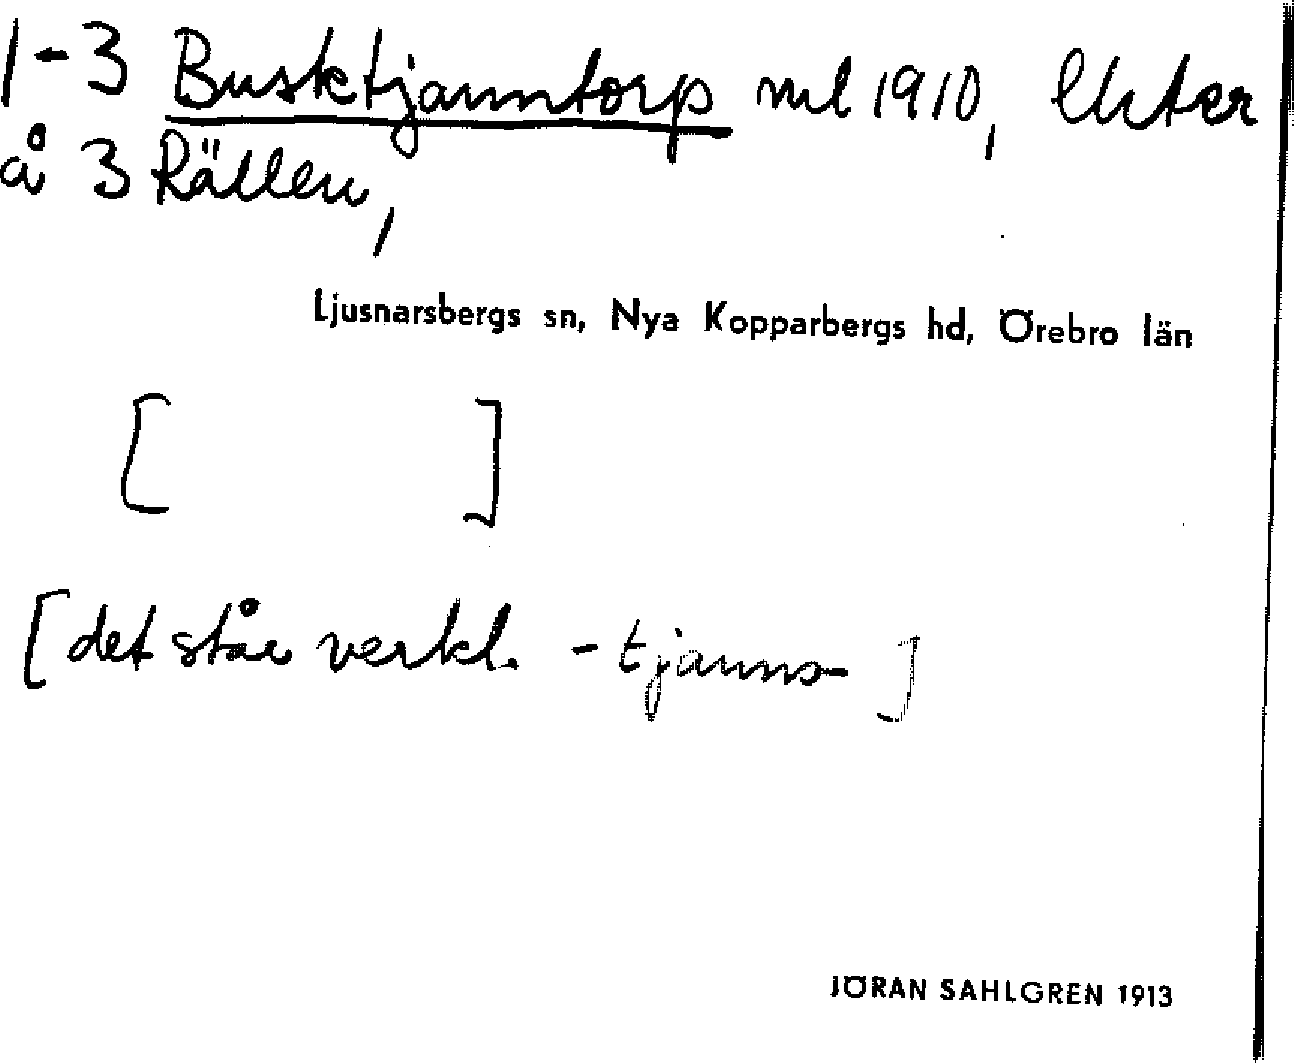 1-3 Busktjanntorp ml 1910,
å 3 Rällen,
Ljusnarsbergs sn, Nya Kopparbergs hd, Örebro län
[ ]
[det står verkl. -tjanns- ]
JÖRAN SAHLGREN 1913